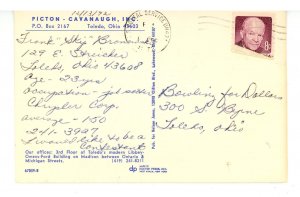 PICTON - CAVANAUGH, INC.
P.O. BOX 2167 Toledo, Ohio 43603
Frank "Ski"
129 E. Streicher
Toledo, Ohio 43608
age - 23 yrs
occupation - job setter
Chrysler Corp.
average - 150
241-3927
I would like to be a
Contestant
Our offices: 3rd Floor of Toledo's modern Libbey-
Owens-Ford Building on Madison between Ontario &
Michigan Streets. (419) 241-8211
67809-B
8¢
Bowling for Dollars
300 S. Byrne
Toledo, Ohio
dp